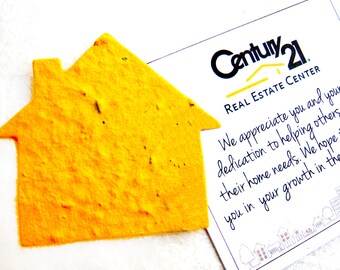 Century 21®
REAL ESTATE CENTER
We appreciate you and your
dedication to helping others
their home needs. We hope
you in your growth in the